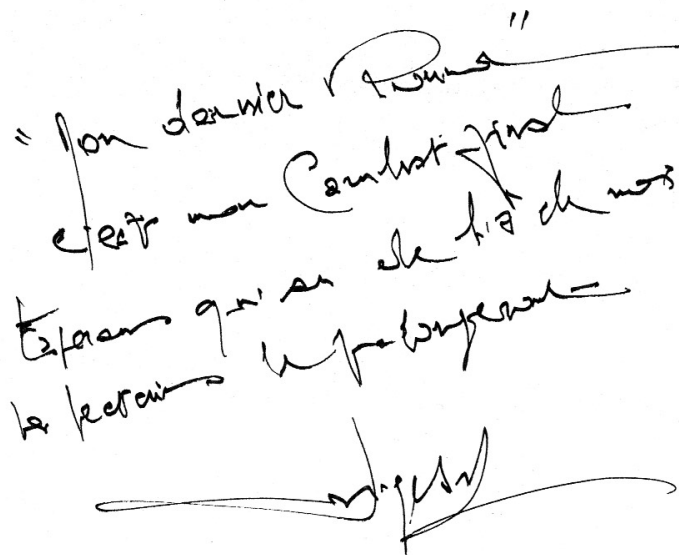 "Mon dernier Round"
c'est mon Combat-final
Espérons qu'au delà de moi
les lecteurs le prolongeront